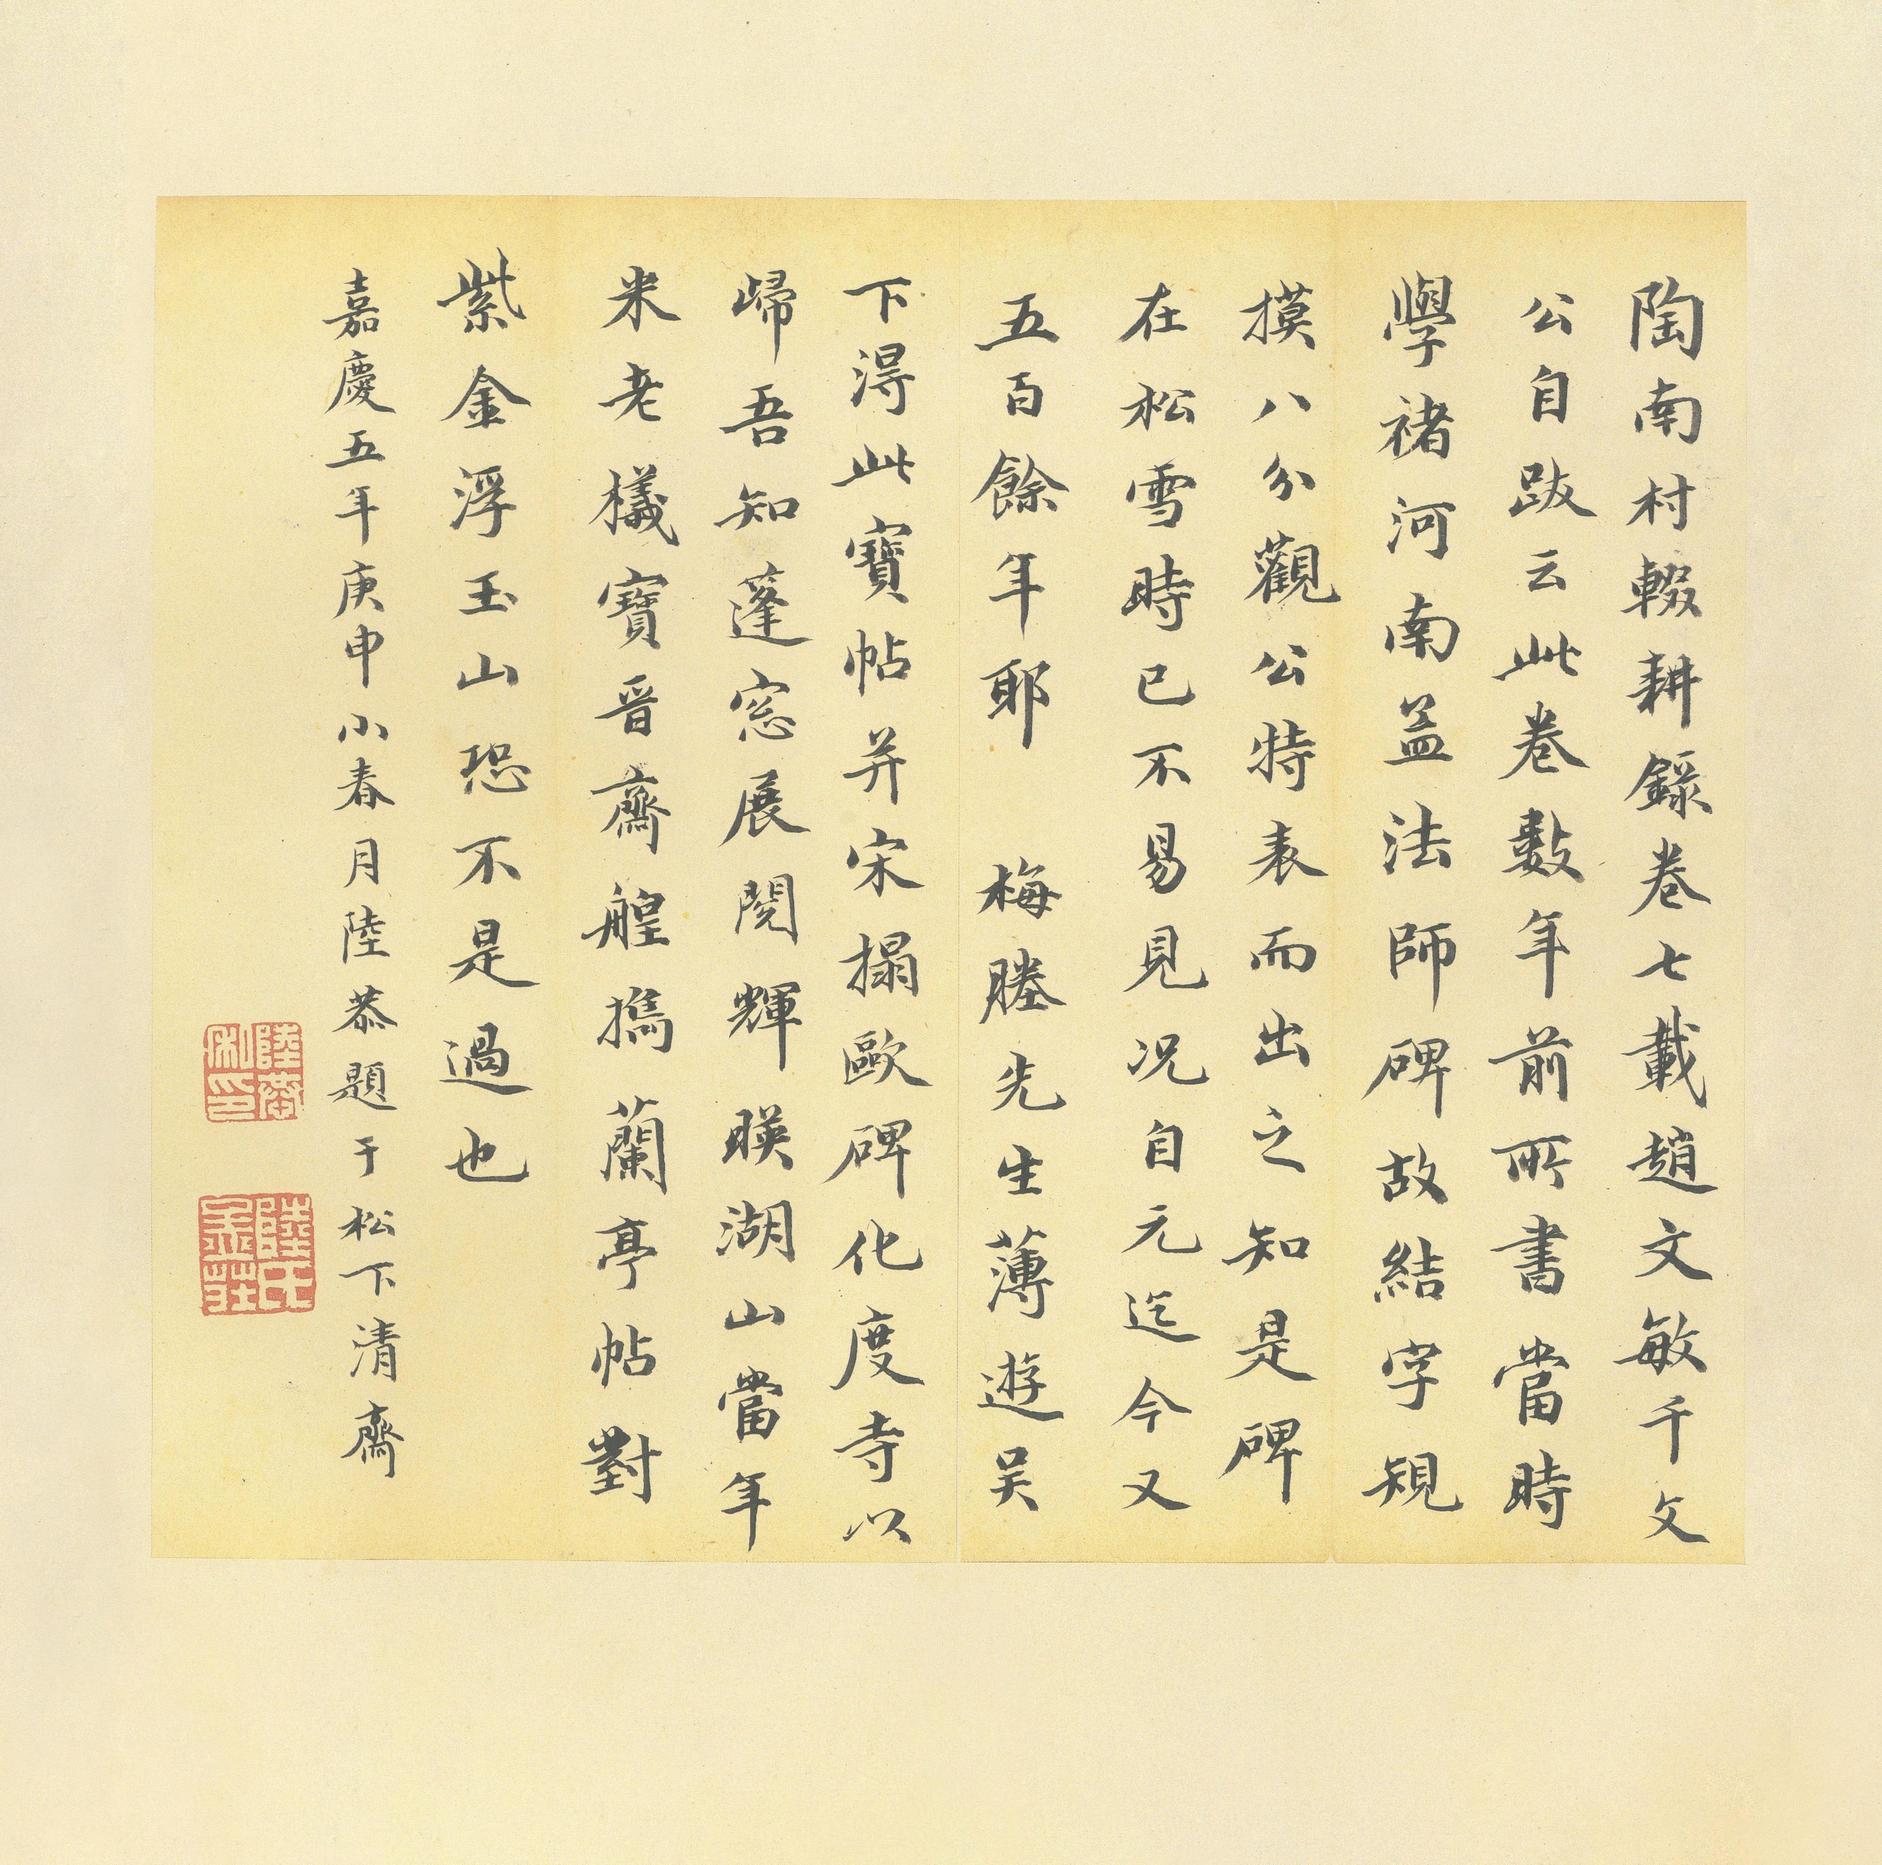 陶南村輟耕錄卷七載趙文敏千文
公自跋云此卷數年前所書當時
學褚河南孟法師碑故結字規
摸八分觀公特表而出之知是碑
在松雪時已不易見况自元迄今又
五百餘年耶　梅塍先生薄遊吴
下淂此寶帖并宋搨歐碑化度寺以
歸吾知蓬窓展閱輝暎湖山當年
米老檥寶晋齋艎撝蘭亭帖對
紫金浮玉山恐不是過也
嘉慶五年庚申小春月陸恭題于松下清齋
陸恭私印